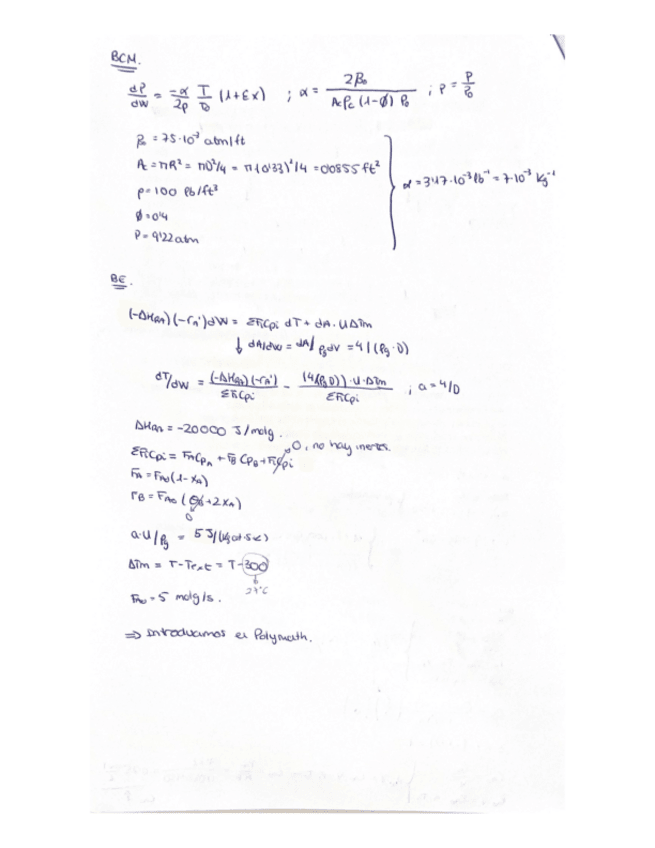 BCM.
dp/dW = -α/2p T/T0 (1+εx) ; α = 2β0 / Ac ρc (1-Ø) P0 ; p = P/P0
β0 = 75·10⁻³ atm/ft
Ac = πR² = πD²/4 = π(0'33)²/4 = 0'0855 ft²
ρ = 100 lb/ft³
α = 3'47·10⁻³ lb⁻¹ = 7·10⁻³ kg⁻¹
Ø = 0'4
P = 9'22 atm
BE.
(-ΔHRA)(-rA')dW = ΣFiCpi dT + dA·UΔTm
↓ dA/dW = dA/ρB dV = 4/(ρB·D)
dT/dW = (-ΔHRA)(-rA') / ΣFiCpi - (4/(ρB D))·U·ΔTm / ΣFiCpi ; a = 4/D
ΔHRA = -20000 J/molg.
ΣFiCpi = FACpA + FB CpB + FiCpi 0, no hay inertes.
FA = FA0(1-XA)
FB = FA0 (θB + 2XA)
0
a·U/ρB = 5 J/(kgcat·s·K)
ΔTm = T-Text = T-300
27ºC
FA0 = 5 molg/s.
⇒ Introducimos en Polymath.